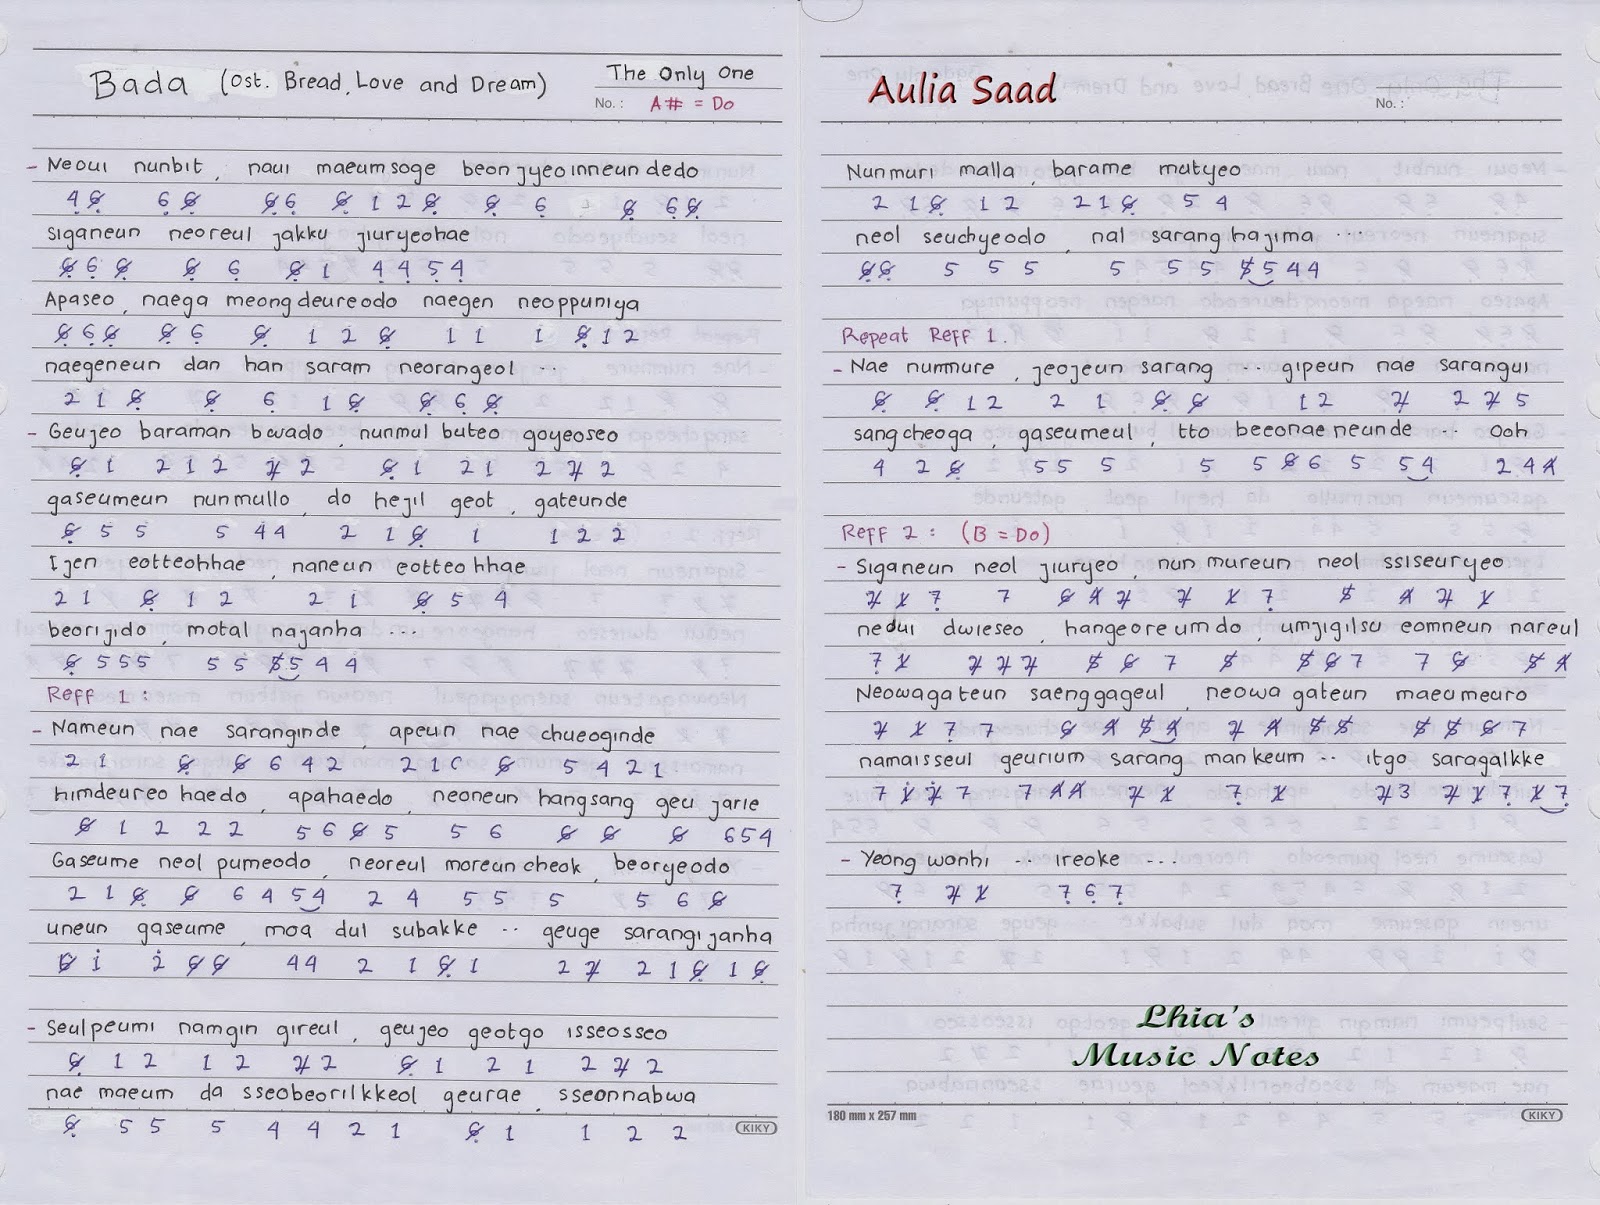 Bada (Ost. Bread, Love and Dream)
The Only One
No. : A# = Do
- Neoui nunbit, naui maeumsoge beonjyeoinneundedo
4 6 6 6 6 6 6 1 2 6 6 6 6 6 6
siganeun neoreul jakku jiuryeohae
6 6 6 6 6 6 1 4 4 5 4
Apaseo, naega meongdeureodo naegen neoppuniya
6 6 6 6 6 6 1 2 6 1 1 1 6 1 2
naegeneun dan han saram neorangeol ..
2 1 6 6 6 1 6 6 6 6
- Geujeo baraman bwado, nunmul buteo goyeoseo
6 1 2 1 2 2 2 6 1 2 1 2 2 2
gaseumeun nunmullo, do hejil geot, gateunde
6 5 5 5 4 4 2 1 6 1 1 2 2
Ijen eotteohhae, naneun eotteohhae
2 1 6 1 2 2 1 6 5 4
beorijido, motal najanha ...
6 5 5 5 5 5 5 5 4 4
Reff 1 :
- Nameun nae saranginde, apeun nae chueoginde
2 1 6 6 6 4 2 2 1 6 5 4 2 1
himdeureo haedo, apahaedo, neoneun hangsang geu jarie
6 1 2 2 2 5 6 6 5 5 6 6 6 6 6 5 4
Gaseume neol pumeodo, neoreul moreuncheok, beoryeodo
2 1 6 6 6 4 5 4 2 4 5 5 5 5 6 6
uneun gaseume, moa dul subakke .. geuge sarangijanha
6 1 2 6 6 4 4 2 1 6 1 2 2 2 1 6 1 6
- Seulpeumi namgin gireul, geujeo geotgo isseosseo
6 1 2 1 2 2 2 6 1 2 1 2 2 2
nae maeum da sseobeorilkkeol geurae, sseonnabwa
6 5 5 5 4 4 2 1 6 1 1 2 2
KIKY
Aulia Saad
No. :
Nunmuri malla, barame mutyeo
2 1 6 1 2 2 1 6 5 4
neol seuchyeodo, nal saranghajima ....
6 6 5 5 5 5 5 5 5 5 4 4
Repeat Reff 1.
- Nae nunmure, jeojeun sarang ... gipeun nae sarangui
6 6 1 2 2 1 6 6 1 2 2 2 2 5
sangcheoga, gaseumeul, tto beeonaeneunde ... ooh
4 2 6 5 5 5 5 5 6 6 5 5 4 2 4 4
Reff 2 : (B = Do)
- Siganeun neol jiuryeo, nunmureun neol ssiseuryeo
2 1 7 7 6 4 2 2 1 7 5 4 2 1
neoui dwieseo, hangeoreumdo umjigilsu eomneun nareul
7 1 2 2 2 5 6 7 5 5 6 7 7 6 5 4
Neowagateun saenggageul, neowa gateun maeumeuro
2 1 7 7 6 4 5 4 2 4 5 5 5 5 6 7
namaisseul geurium sarang mankeum .. itgo saragalkke
7 1 2 7 7 4 4 2 1 7 1 2 3 2 1 7 1 7
- Yeongwonhi ... ireoke ...
7 2 1 7 6 7
Lhia's
Music Notes
180 mm x 257 mm
KIKY